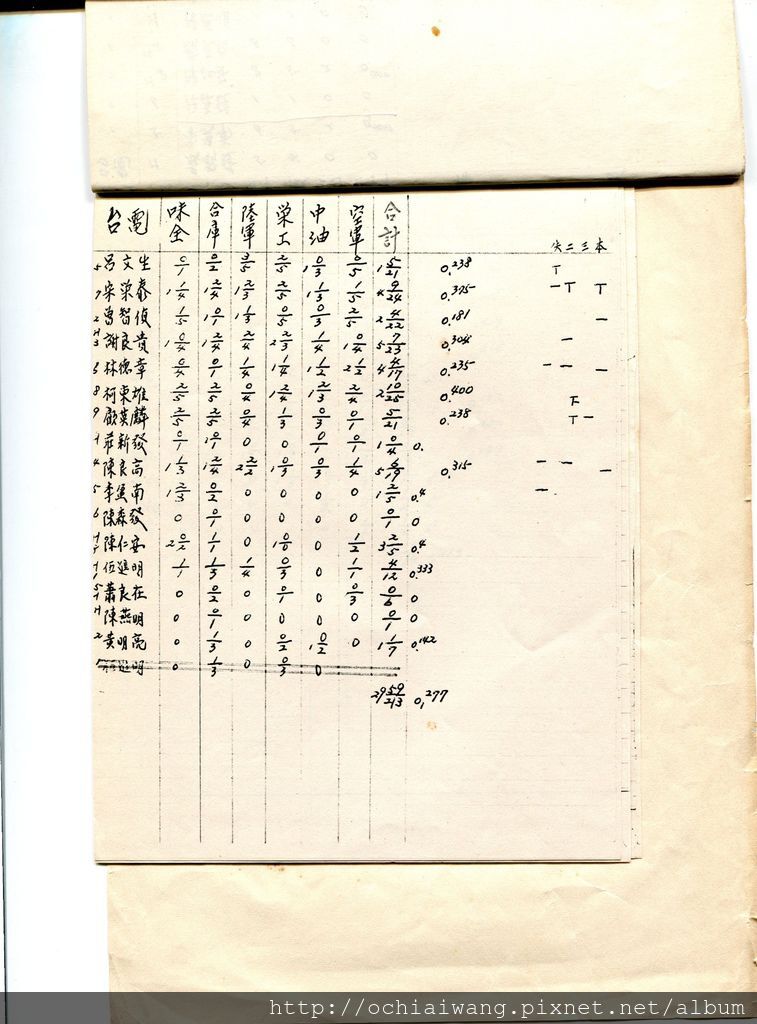 台電 味全 合庫 陸軍 榮工 中油 空軍 合計
失 二 三 本
5 呂文生 0/1 0/2 3/5 2/5 1 0/3 0/5 1 5/21 0.238 T
7 宋榮泰 1 1/4 1 2/4 1 2/3 2/5 1 1/3 1/5 4 9/24 0.375 一 T T
2 曾智偵 1/5 1 0/1 1 1/3 0/5 0/3 2/5 2 4/22 0.181 一
謝良貴 1 0/4 1 2/4 2/4 2 2/3 1/4 1 0/4 5 7/23 0.304 一
6 林德幸 0/4 0/1 1/4 1 1/4 1 1/2 2 1/2 4 4/17 0.235 一 一 一
8 柯東雄 2/5 2/5 0/4 1 2/4 1 2/3 2/4 2 10/25 0.400
9 顧英麟 2/5 2/5 0/4 1/3 0/3 0/1 5/21 0.238 T 一
新發 0/1 1 0/1 0 0 0/1 0/1 1 0/4 0.
4 陳良高 1 1/3 1 2/4 2 2/2 1 0/3 0/3 1/4 5 6/19 0.315 一 一 一
5 李 南 1 2/3 0/2 0 0 0 0 1 2/5 0.4 一
6 陳森發 0 0/1 0 0 0 0 0/1 0
陳仁安 2 0/2 1/1 0 1 0/0 0 1/2 3 2/5 0.4
伍進明 1/1 1/3 1/4 0/3 0 1/1 4/12 0.333
蕭良在 0 0/2 0 0/1 0 0/3 0/6 0
陳燕明 0 0/1 0 0 0 0 0/1 0
2 黃明亮 0 1/3 0 0/2 1 0/2 0 1 1/7 0.142
進明 0 1/3 0 0/3 0
29 59/213 0.277
http://ochiaiwang.pixnet.net/album